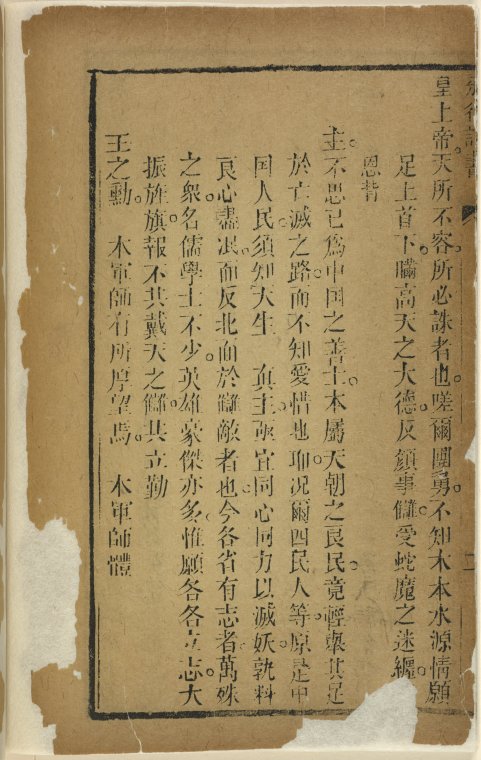 頒行詔書
皇上帝天所不容所必誅者也嗟爾團勇不知木本水源情願
足上首下瞞高天之大德反顏事讎受蛇魔之迷纏
恩背
主不思已為中国之善士本屬天朝之良民竟輕舉其足
於亡滅之路而不知愛惜也耶况爾四民人等原是中
国人民須知天生真主亟宜同心同力以滅妖孰料
良心盡泯而反北面於讎敵者也今各省有志者萬殊
之衆名儒學士不少英雄豪傑亦多惟願各各立志大
振旌旗報不共戴天之讎共立勤
王之勳本軍師有所厚望焉本軍師體